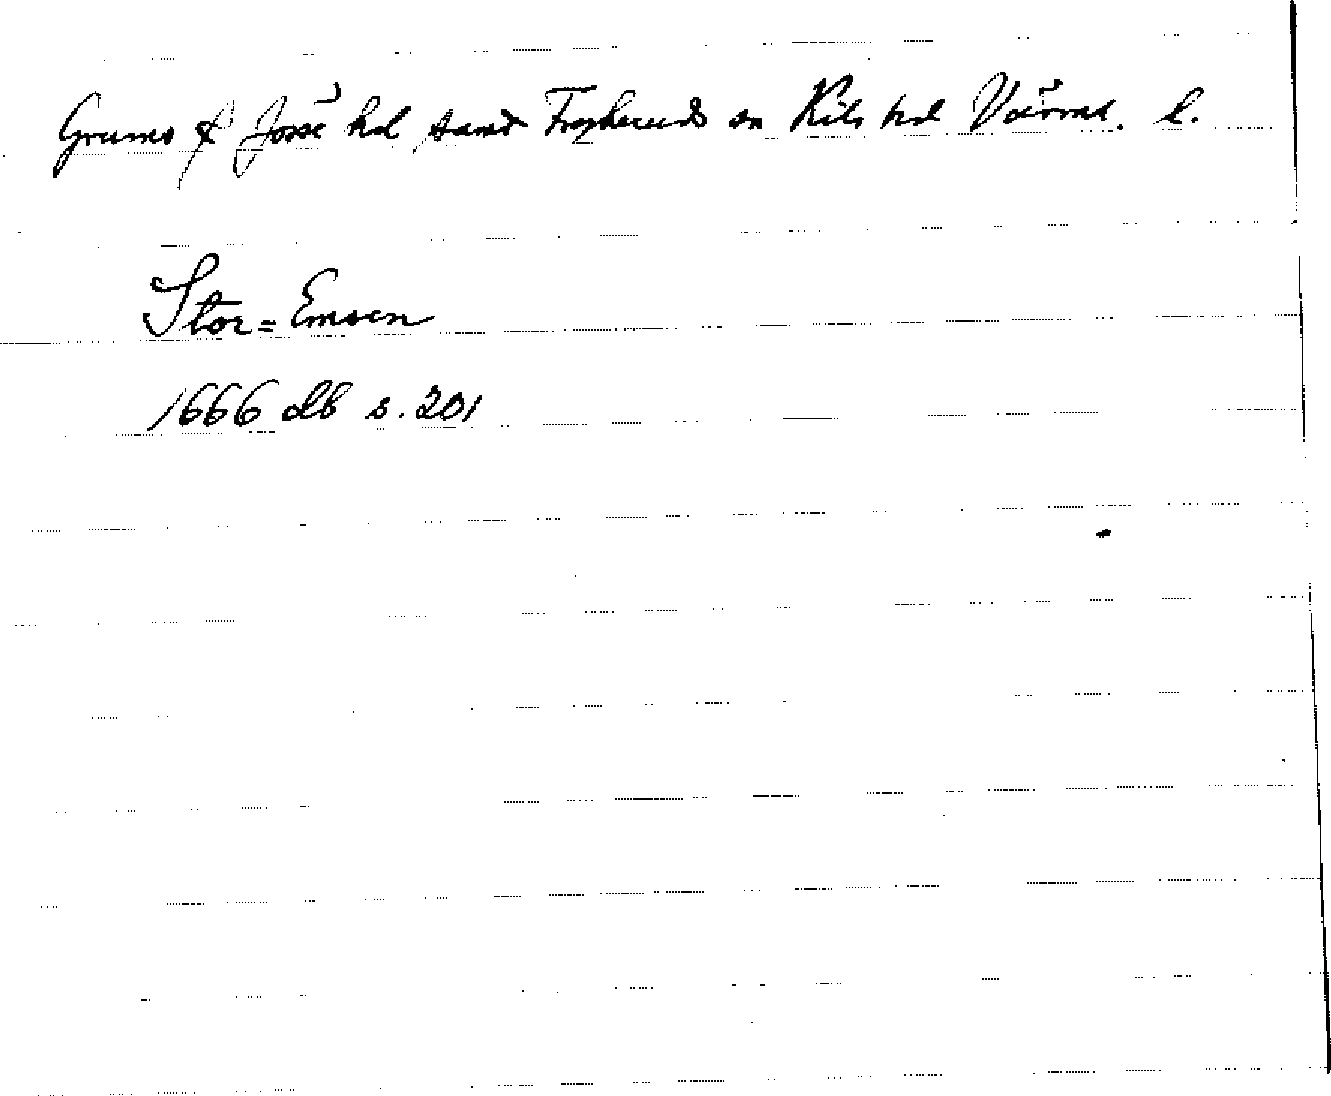 Grums & Jösse hd samt Frykerud sn Kils hd Värml. l.
Stor=Emsen
1666 db s. 201